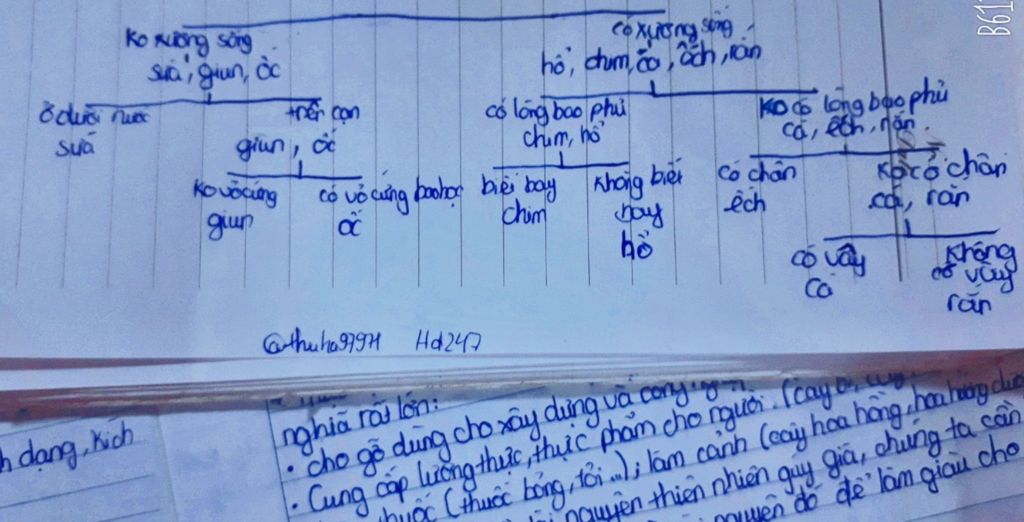 B61
Ko xương sống
sứa, giun, ốc
có xương sống
hổ, chim, cá, ếch, rắn
ở dưới nước
sứa
trên cạn
giun, ốc
có lông bao phủ
chim, hổ
Ko có lông bao phủ
cá, ếch, rắn
Ko vỏ cứng
giun
có vỏ cứng bao bọc
ốc
biết bay
chim
không biết
bay
hổ
có chân
ếch
Ko có chân
cá, rắn
có vây
cá
không
có vây
rắn
@thuha9797H Hd247
h dạng, kích
nghĩa rất lớn:
• cho gỗ dùng cho xây dựng và công
• Cung cấp lương thực, thực phẩm cho người. (cây
thuốc (thuốc bỏng, tỏi...); làm cảnh (cây hoa hồng, hoa hướng dươ
nguyên thiên nhiên quý giá, chúng ta cần
nguyên đó để làm giàu cho